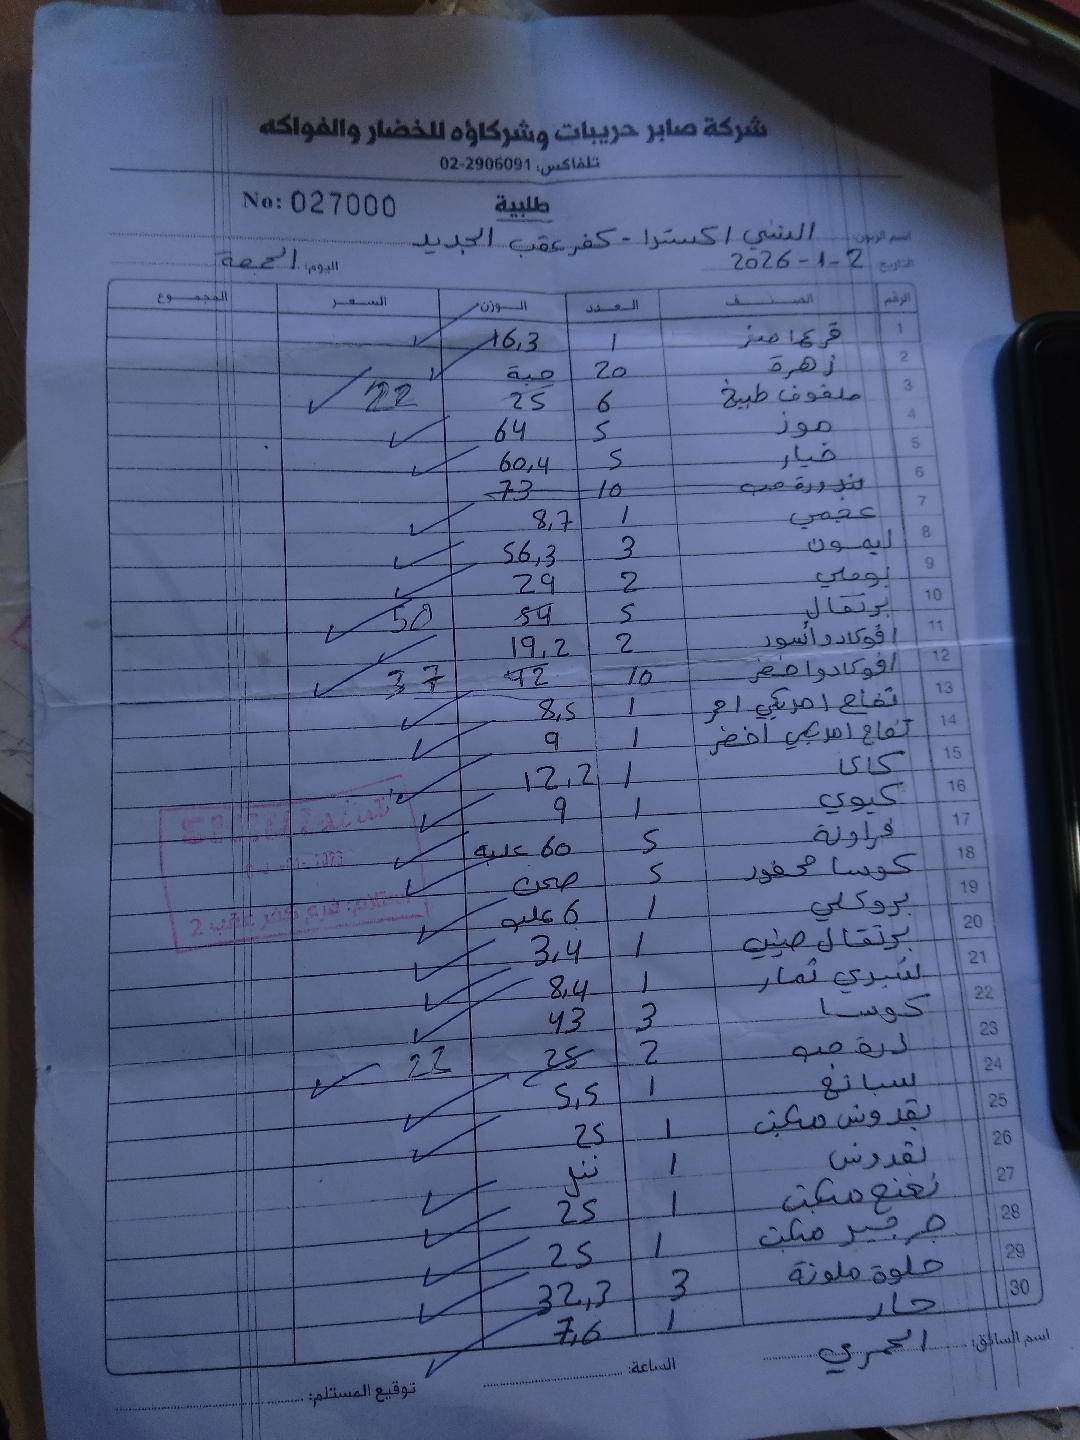 شركة صابر حريبات وشركاؤه للخضار والفواكه
تلفاكس: 02-2906091
طلبية No: 027000
اسم الزبون: السني اكسترا - كفر عقب الجديد
التاريخ: 2 - 1 - 2026 اليوم: الجمعة
الرقم الصنف العدد الوزن السعر المجموع
1 1 16,3
2 زهرة 20 حبة
3 ملفوف طبيخ 6 25 22
4 موز 5 64
5 خيار 5 60,4
6 بندورة حب 10 73
7 عجمي 1 8,7
8 ليمون 3 56,3
9 بوملي 2 29
10 برتقال 5 54 50
11 افوكادو أسود 2 19,2
12 افوكادو اخضر 10 42 37
13 تفاح امريكي احمر 1 8,5
14 تفاح امريكي أخضر 1 9
15 كاكا 1 12,2
16 كيوي 1 9
17 فراولة 5 60 علبة
18 كوسا محفور 5 صحن
19 بروكلي 1 6 علبه
20 برتقال صيني 1 3,4
21 شيري ثمار 1 8,4
22 كوسا 3 43
23 ذرة حب 2 25 22
24 سبانخ 1 5,5
25 بقدونس مكبت 1 25
26 بقدونس 1
27 نعنع مكبت 1 25
28 جرجير مكبت 1 25
29 حلوة ملونة 3 32,3
30 حار 1 7,6
اسم السائق: العمري الساعة: توقيع المستلم:
استلام: فرع كفر عقب 2